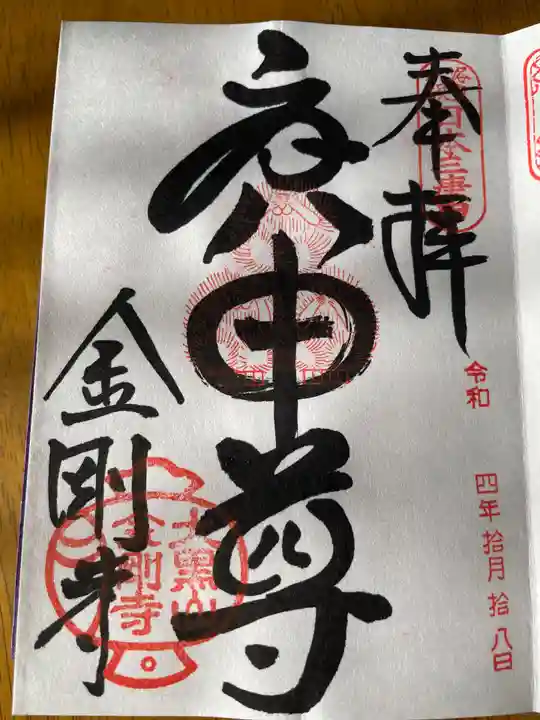 奉拝
令和 四年 拾月 拾八日
庚申尊
金剛寺
大黒山
金剛寺